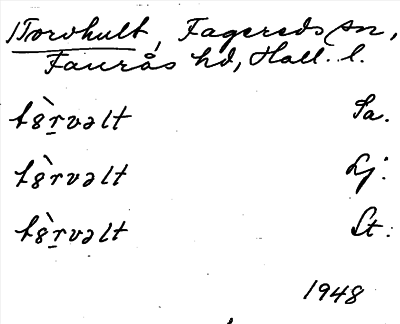 Torvhult, Fagereds sn,
Faurås hd, Hall. l.
tȣ̀rvəlt Sa.
tȣ̀rvəlt Lj.
tȣ̀rvəlt St.
1948